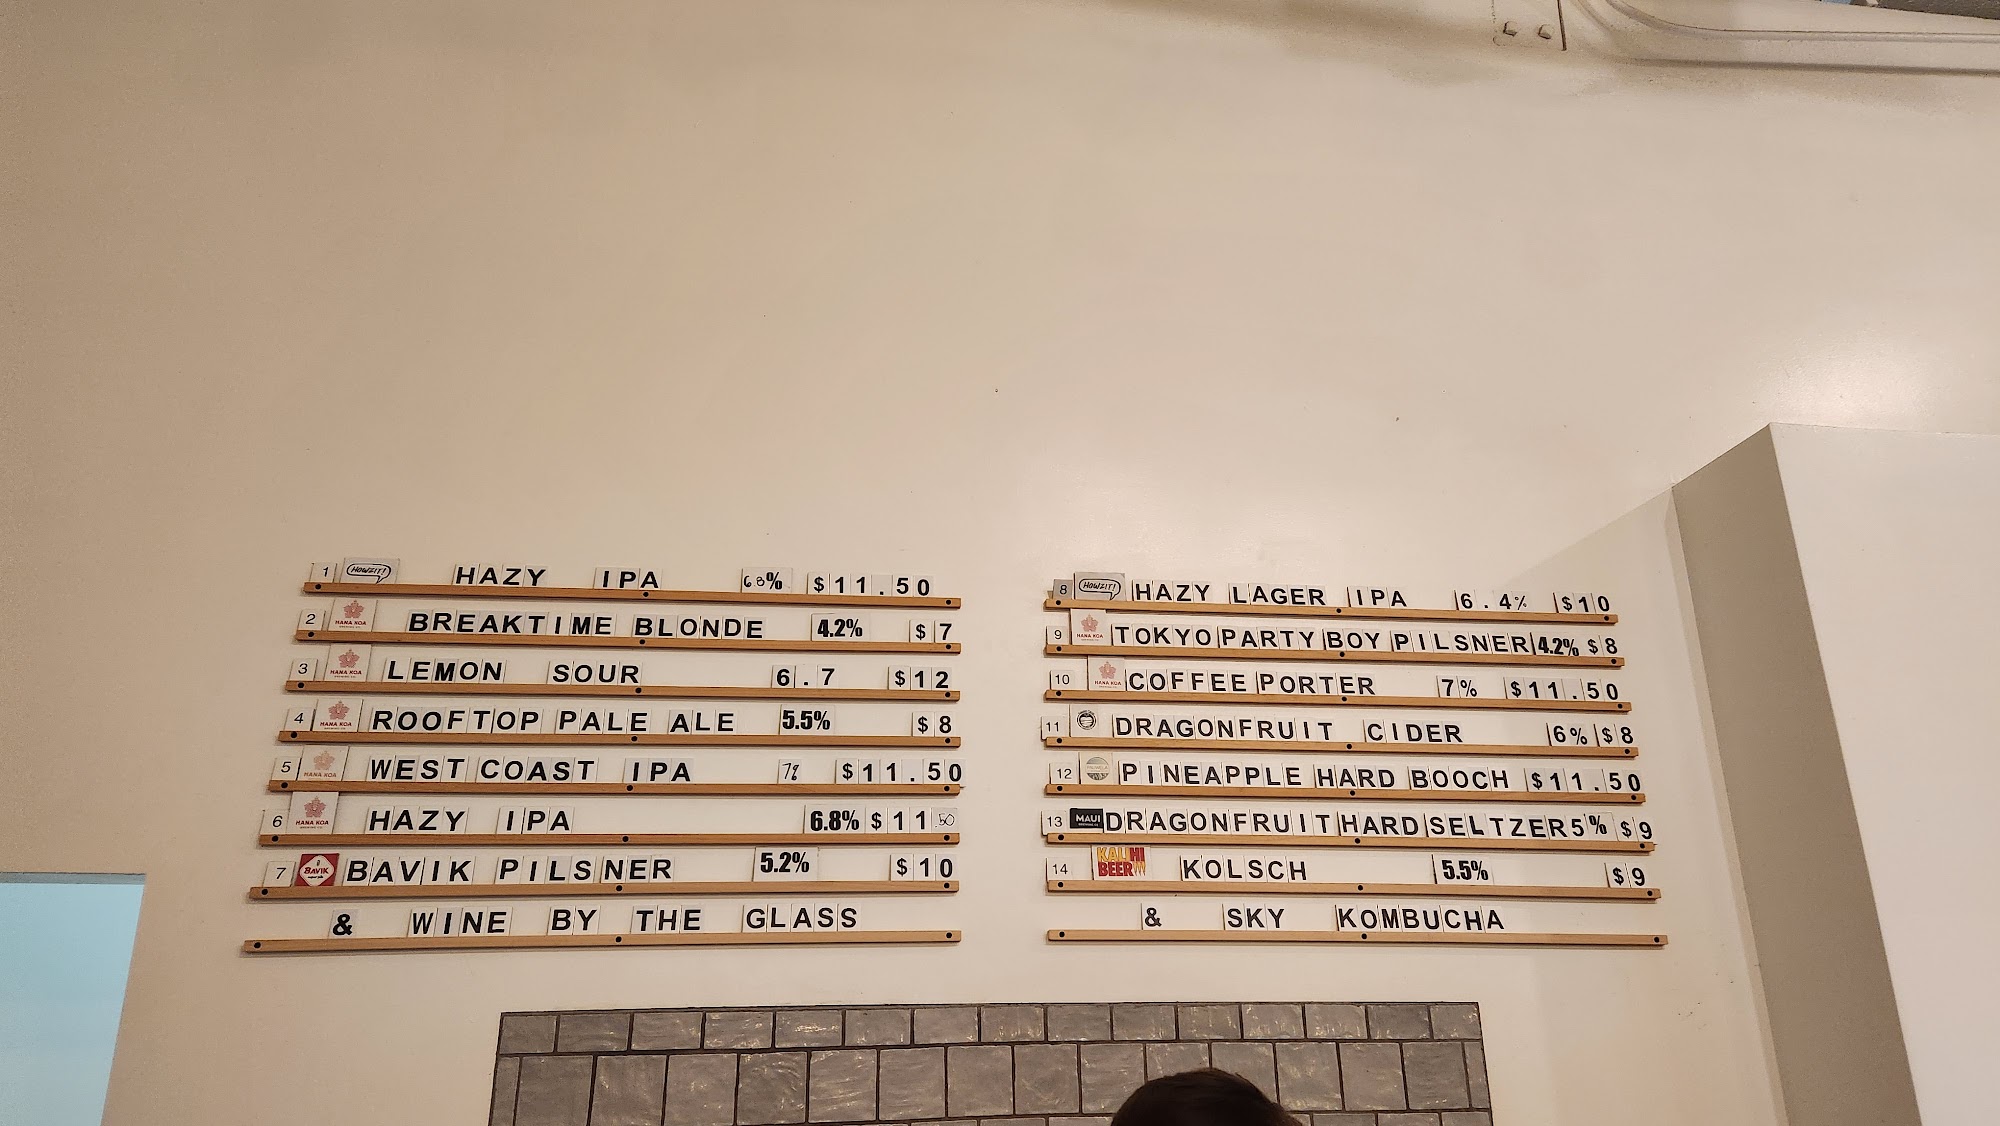 1 HOWZIT! HAZY IPA 6.8% $11.50
2 HANA KOA BREAKTIME BLONDE 4.2% $7
3 HANA KOA LEMON SOUR 6.7 $12
4 HANA KOA ROOFTOP PALE ALE 5.5% $8
5 HANA KOA WEST COAST IPA 7% $11.50
6 HANA KOA HAZY IPA 6.8% $11.50
7 BAVIK BAVIK PILSNER 5.2% $10
& WINE BY THE GLASS
8 HOWZIT! HAZY LAGER IPA 6.4% $10
9 HANA KOA TOKYO PARTY BOY PILSNER 4.2% $8
10 HANA KOA COFFEE PORTER 7% $11.50
11 DRAGONFRUIT CIDER 6% $8
12 PINEAPPLE HARD BOOCH $11.50
13 MAUI DRAGONFRUIT HARD SELTZER 5% $9
14 KALIHI BEER KOLSCH 5.5% $9
& SKY KOMBUCHA